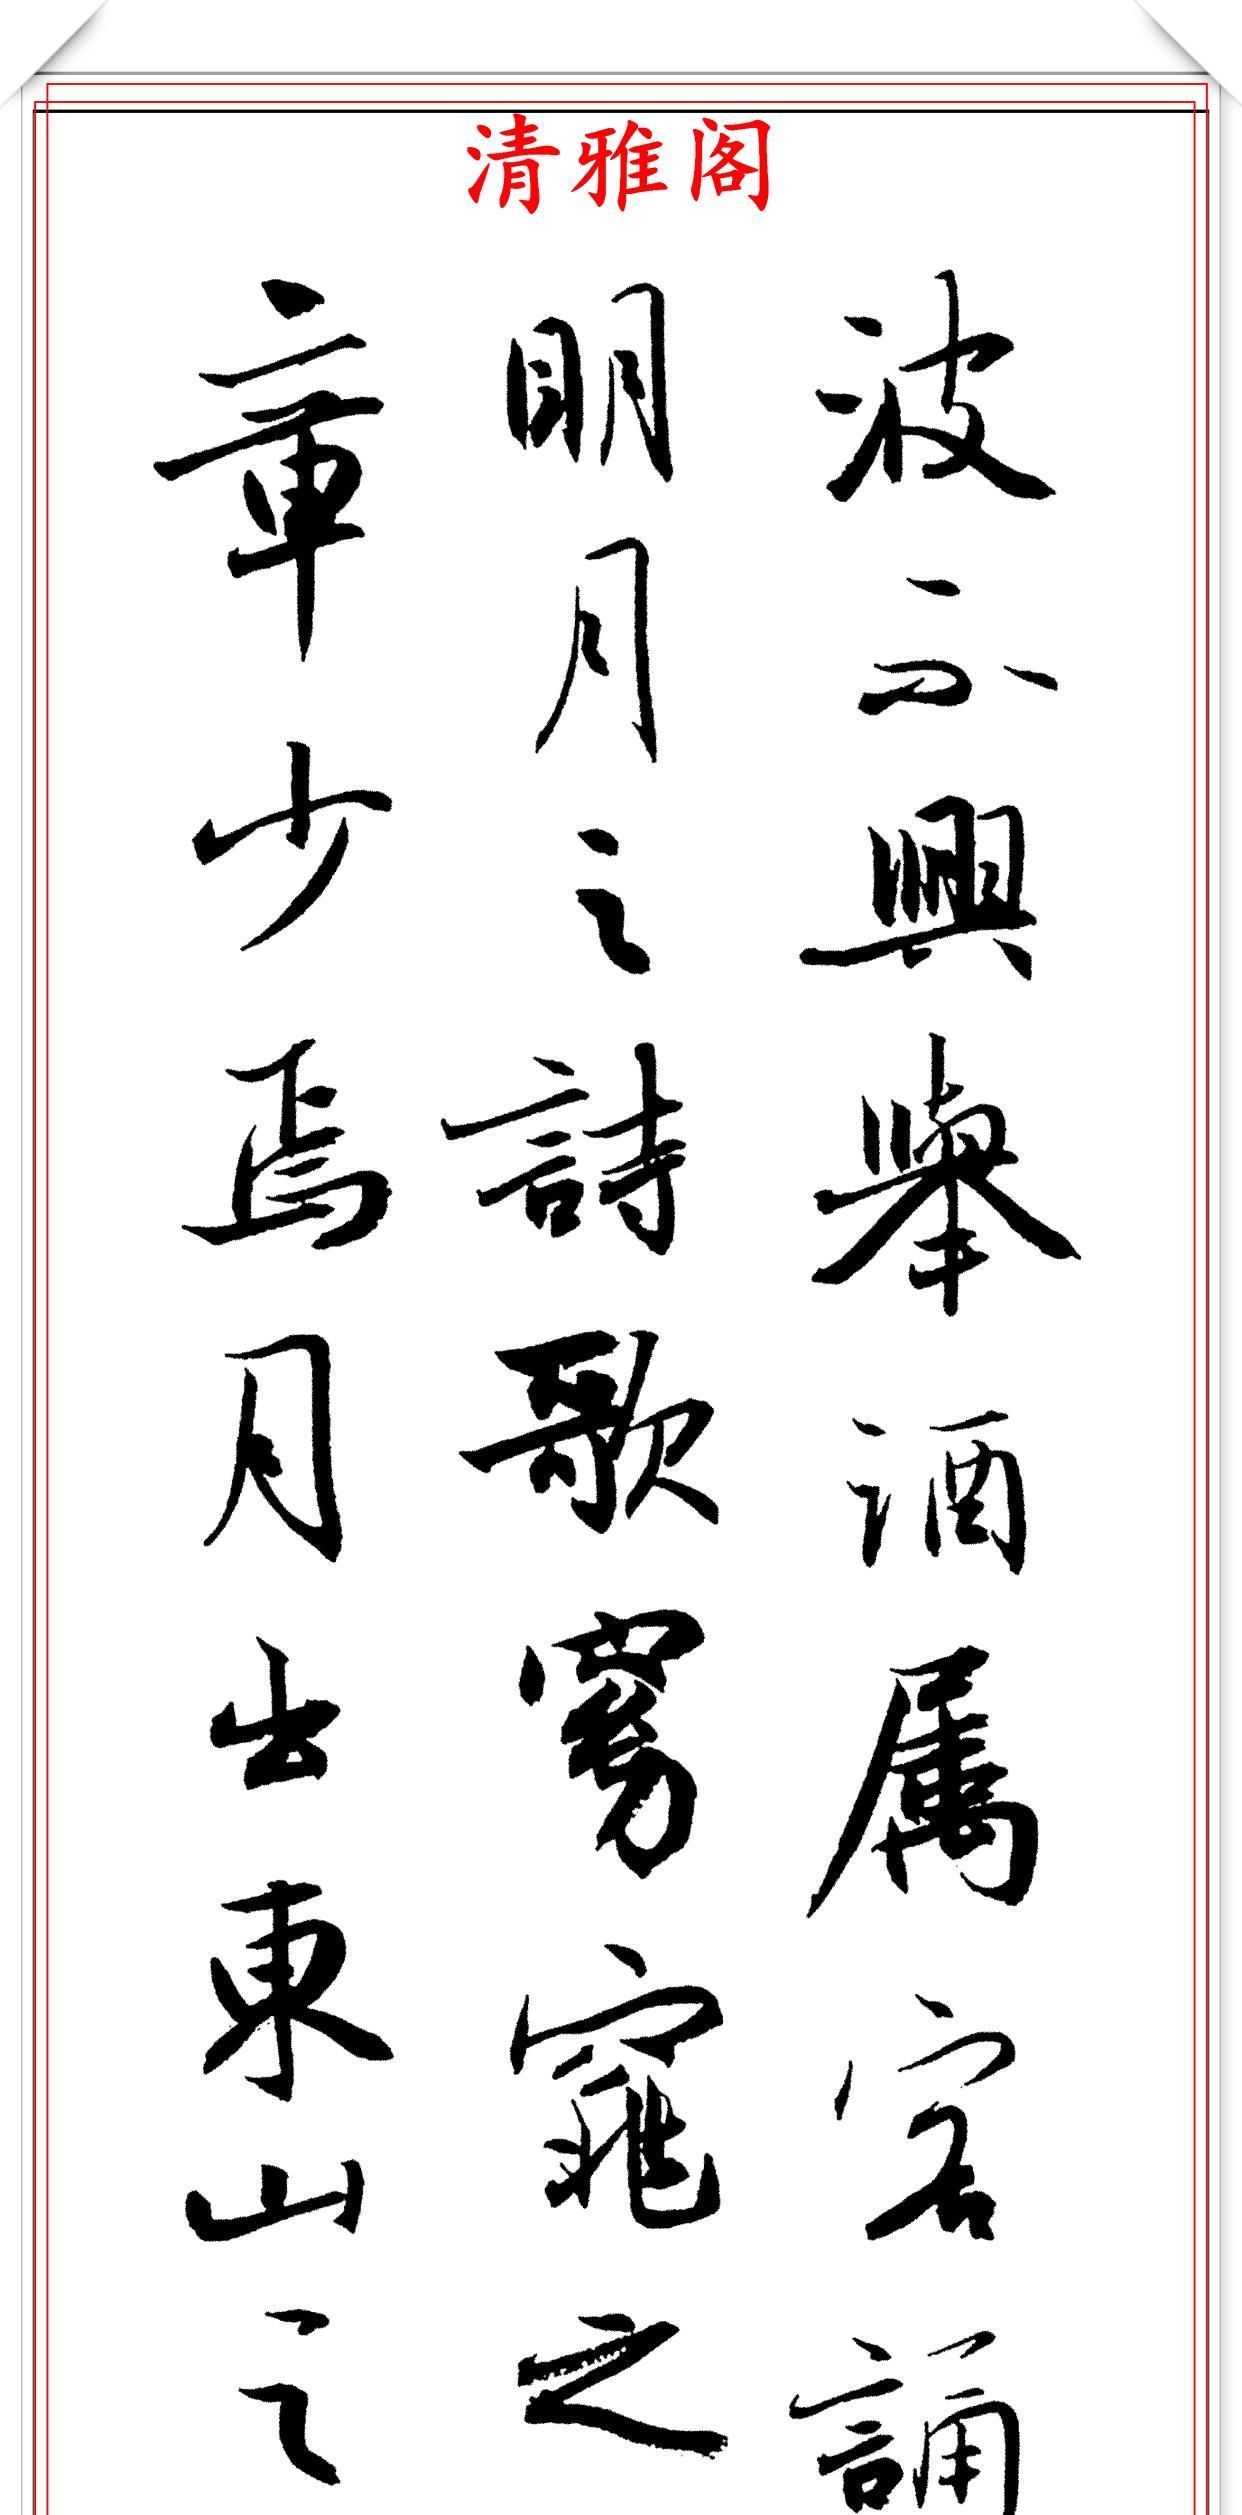 清雅阁
波不興舉酒属客誦
明月之詩歌窈窕之
章少焉月出東山之